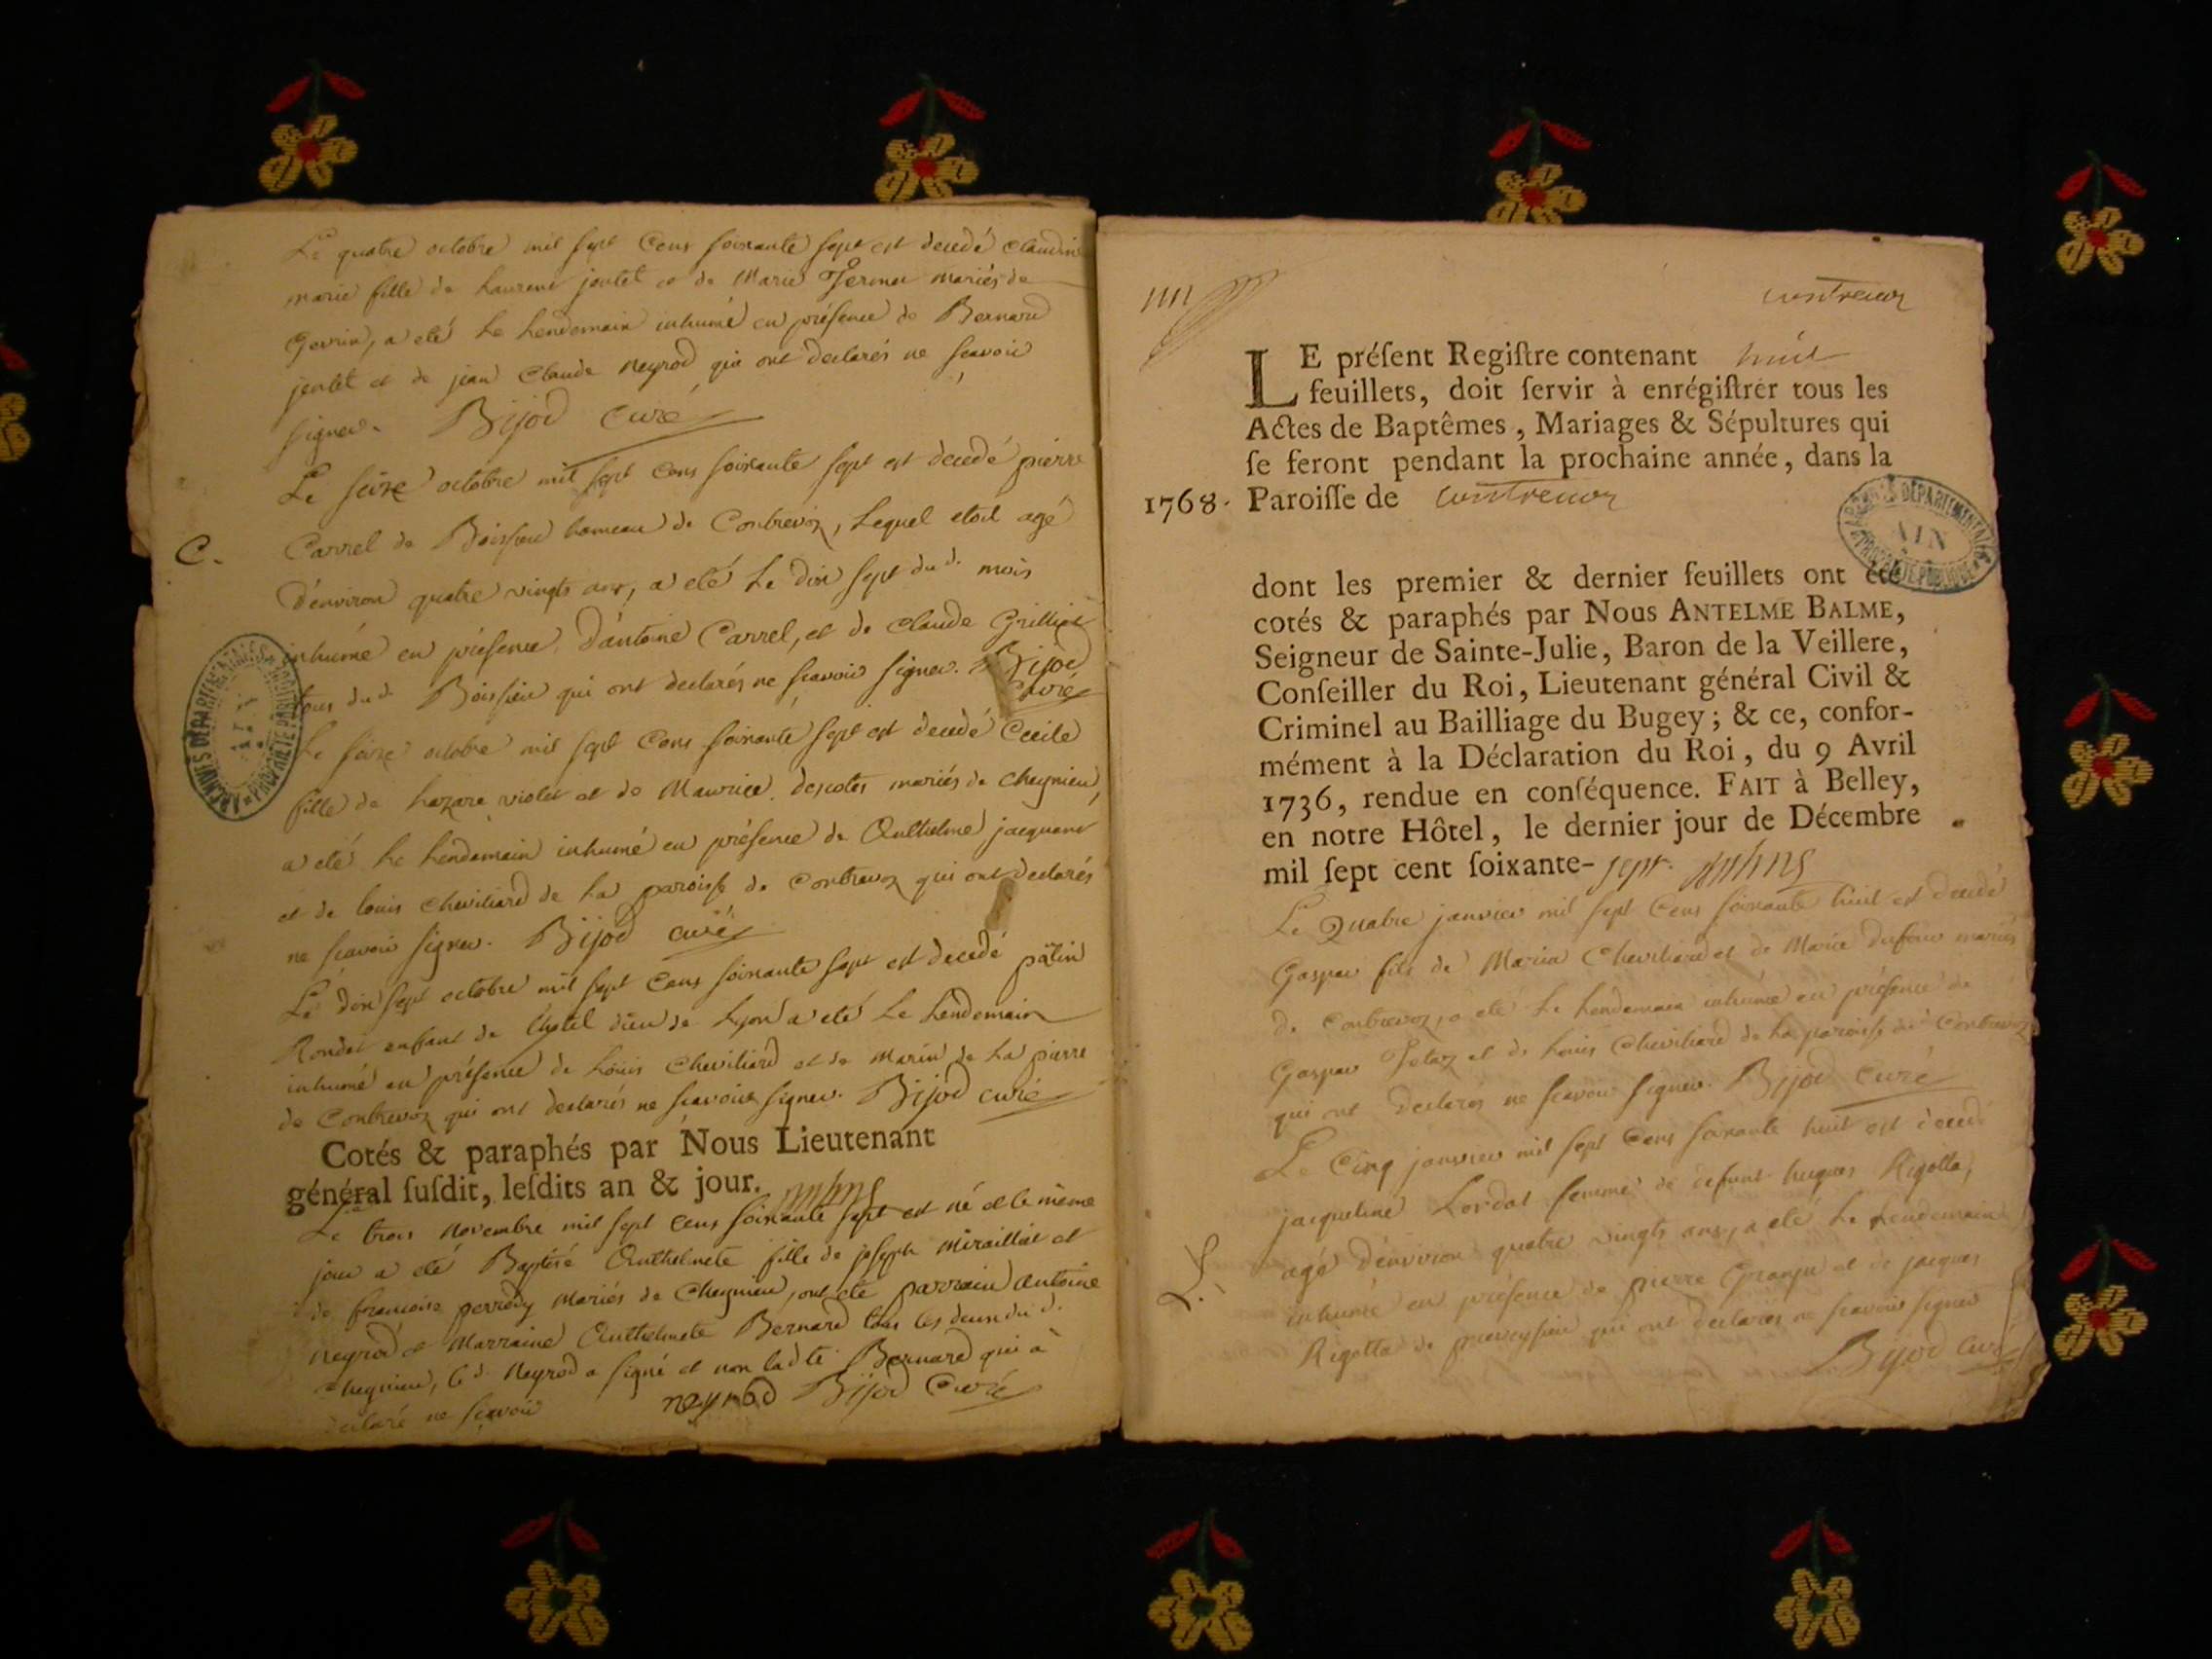 Le quatre octobre mil sept Cens soixante sept est decedé claudin
marie fille de Laurent joutet et de Marie mariés de
Gevrin, a eté Le Lendemain inhumé en présence de Bernard
joutet et de jean Claude Neyrod qui ont declarés ne scavoir
signer. Bijod curé
Le seize octobre mil sept Cens soixante sept est decedé pierre
C. Carrel de Boissieu hameau de Contrevoz, Lequel etoit agé
d'environ quatre vingts ans, a eté Le dix sept dud. mois
inhumé en présence d'antoine Carrel, et de Claude Grilliet
tous dud. Boissieu qui ont declarés ne scavoir signer. Bijod
curé
Le seize octobre mil sept Cens soixante sept est decedé Cecile
fille de Lazare violet et de Maurice descotes mariés de Cheignieu,
a eté Le Lendemain inhumé en présence de Anthelme jacquemet
et de louis Cheviliard de La paroisse de Contrevoz qui ont declarés
ne scavoir signer. Bijod curé
Le dix sept octobre mil sept Cens soixante sept est decedé
Rondet enfant de l'hotel dieu de Lyon a eté Le Lendemain
inhumé en présence de Loüis Cheviliard et de Marin de La pierre
de Contrevoz qui ont declarés ne scavoir signer. Bijod curé
Cotés & paraphés par Nous Lieutenant
général susdit, lesdits an & jour.
Le trois Novembre mil sept Cens soixante sept est né et le même
jour a eté Baptisé Anthelmete fille de joseph Miraillet et
de francoise perrody Mariés de Cheignieu, ont eté parrain Antoine
Neyrod et Marraine Anthelmete Bernard tous les deux dud.
Cheignieu, le d. Neyrod a signé et non ladte Bernard qui a
declaré ne scavoir neyrod Bijod Curé
ARCHIVES DEPARTEMENTALES
AIN
PROPRIÉTÉ PUBLIQUE
contrevoz
LE présent Registre contenant huit
feuillets, doit servir à enrégistrer tous les
Actes de Baptêmes, Mariages & Sépultures qui
se feront pendant la prochaine année, dans la
1768. Paroisse de contrevoz
ARCHIVES DÉPARTEMENTALES
AIN
PROPRIÉTÉ PUBLIQUE
dont les premier & dernier feuillets ont été
cotés & paraphés par Nous ANTELME BALME,
Seigneur de Sainte-Julie, Baron de la Veillere,
Conseiller du Roi, Lieutenant général Civil &
Criminel au Bailliage du Bugey; & ce, confor-
mément à la Déclaration du Roi, du 9 Avril
1736, rendue en conséquence. FAIT à Belley,
en notre Hôtel, le dernier jour de Décembre
mil sept cent soixante-sept.
Le Quatre janvier mil sept Cens soixante huit est decedé
Gaspar fils de Marin Cheviliard et de Marie dufour mariés
de Contrevoz, a eté Le Lendemain inhumé en présence de
Gaspar et de Louis Cheviliard de La paroisse de Contrevoz
qui ont declarés ne scavoir signer. Bijod Curé
Le Cinq janvier mil sept Cens soixante huit est decedé
jacqueline Lordat femme de defunt hugues Rigotta,
agé d'environ quatre vingts ans, a eté Le Lendemain
inhumé en présence de pierre et de jacques
Rigotta de qui ont declarés ne scavoir signer
Bijod Curé